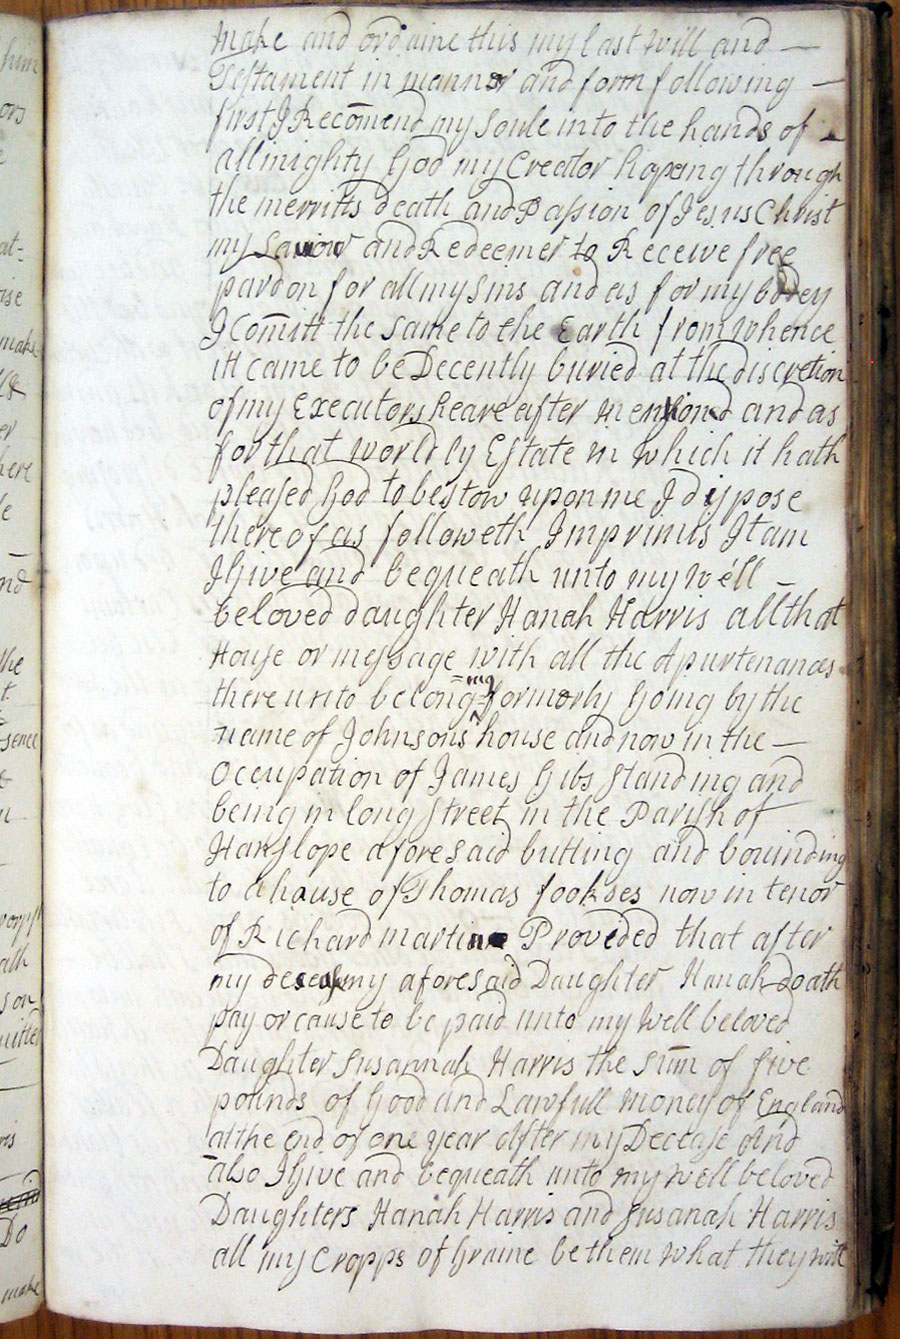 make and ordaine this my last will and —
Testament in manner and form following —
first I Recom̄end my Soule into the hands of
allmighty God my Creator hopeng through
the merritts death and Passion of Jesus Christ
my Saviour and Redeemer to Receive free
pardon for all my Sins and as for my bodey
I Com̄itt the same to the Earth from whence
itt came to be Decently buried at the discretion
of my Executors heareafter mensiond and as
for that worldly Estate in which it hath
pleased God to bestow upon me I dispose
there of as followeth Imprimis Itam
I Give and bequeath unto my well —
beloved daughter Hanah Harris all that
House or message with all the Apurtenances
there unto belonging formorly Going by the
name of Johnsons house and now in the —
Occupation of James Gibs standing and
being in long street in the Parish of
Hanslope aforesaid butting and bounding
to a house of Thomas fookses now in tenor
of Richard martin Provided that after
my decease my aforesaid Daughter Hanah doath
pay or cause to be paid unto my well beloved
Daughter Susannah Harris the sūm of five
pounds of Good and Lawfull money of England
at the end of one year After my Decease And
also I Give and bequeath unto my well beloved
Daughters Hanah Harris and Susanah Harris
all my Cropps of Graine be them what they will
him
ors
at-
make
er
here
nd
the
t